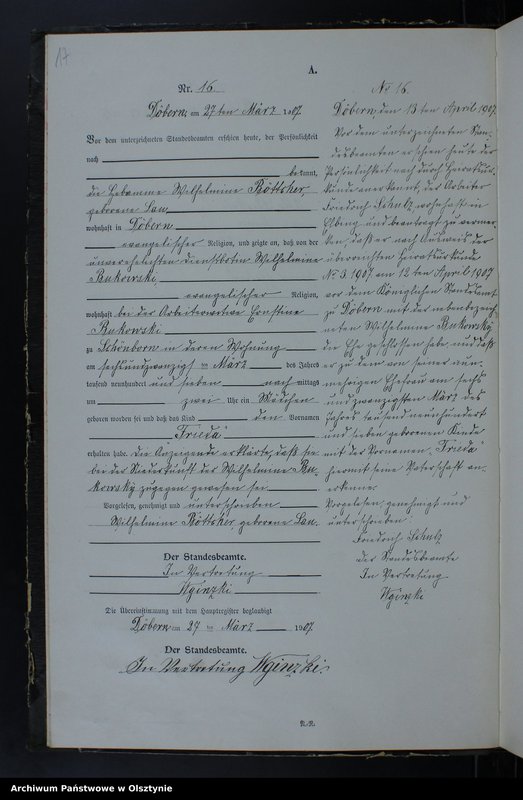 17
A.
Nr. 16.
Döbern, am 27ten März 1907.
Vor dem unterzeichneten Standesbeamten erschien heute, der Persönlichkeit
nach
bekannt,
die Hebamme Wilhelmine Röttcher,
geborene Lau
wohnhaft in Döbern
evangelischer Religion, und zeigte an, daß von der
unverehelichten Dienstbotin Wilhelmine
Bukowski,
evangelischer Religion,
wohnhaft bei der Arbeiterwitwe Ernstine
Bukowski
zu Schönborn in deren Wohnung
am sechsundzwanzigsten März des Jahres
tausend neunhundert und sieben nach mittags
um zwei Uhr ein Mädchen
geboren worden sei und daß das Kind den Vornamen
"Frieda"
erhalten habe. Die Anzeigende erklärte, daß sie
bei der Niederkunft der Wilhelmine Bu-
kowski zugegen gewesen sei.
Vorgelesen, genehmigt und unterschrieben
Wilhelmine Röttcher, geborene Lau.
Der Standesbeamte.
In Vertretung
Die Übereinstimmung mit dem Hauptregister beglaubigt
Döbern, am 27 ten März 1907.
Der Standesbeamte.
In Vertretung
No 16.
Döbern, den 13ten April 1907.
Vor dem unterzeichneten Stan-
desbeamten erschien heute der
Persönlichkeit nach durch Heiratsur-
kunde anerkannt, der Arbeiter
Friedrich Schulz, wohnhaft in
Elbing und beantragt zu vermer-
ken, daß er nach Ausweis der
Heiratsurkunde
No 3. 1907 am 13ten April 1907
vor dem Königlichen Standesamt
zu Döbern mit der nebenbezeich-
neten Wilhelmine Bukowski
die Ehe geschlossen habe und daß
er zu dem von seiner nun-
mehrigen Ehefrau am sechs
und zwanzigsten März des
Jahres tausend neunhundert
und sieben geborenen Kinde
mit der Vornamen "Frieda"
hiermit seine Vaterschaft an-
erkenne.
Vorgelesen, genehmigt und
unterschrieben
Friedrich Schulz
Der Standesbeamte
In Vertretung
Archiwum Państwowe w Olsztynie